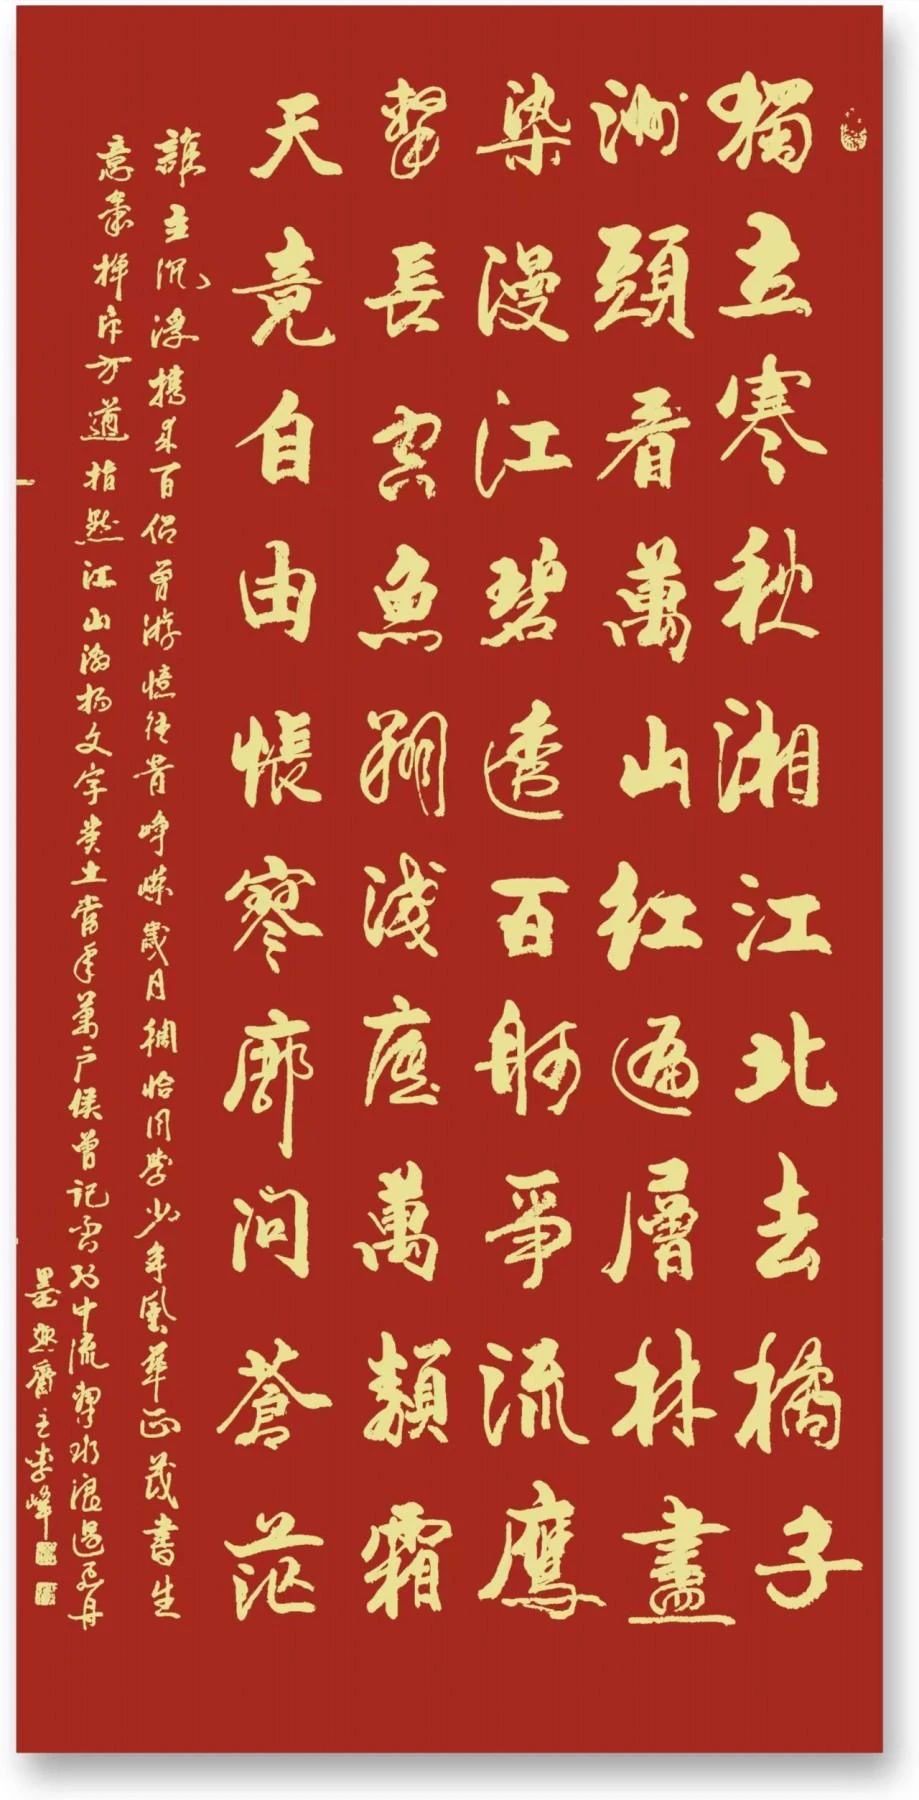 獨立寒秋湘江北去橘子
洲頭看萬山紅遍層林盡
染漫江碧透百舸爭流鷹
擊長空魚翔淺底萬類霜
天竟自由悵寥廓問蒼茫
誰主沉浮攜來百侶曾游憶往昔崢嶸歲月稠恰同學少年風華正茂書生
意氣揮斥方遒指點江山激揚文字糞土當年萬户侯曾記否到中流擊水浪遏飛舟
墨齋主李峰